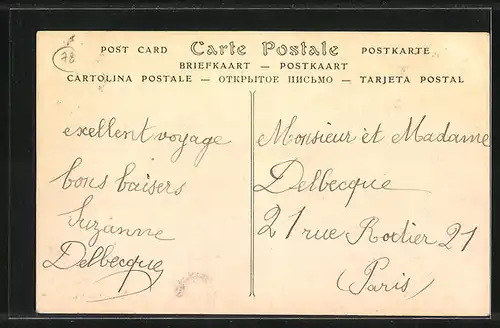 78
POST CARD Carte Postale POSTKARTE
BRIEFKAART — POSTKAART
CARTOLINA POSTALE — ОТКРЫТОЕ ПИСЬМО — TARJETA POSTAL
exellent voyage
bons baisers
Suzanne
Delbecque
Monsieur et Madame
Delbecque
21 rue Rodier 21
(Paris)